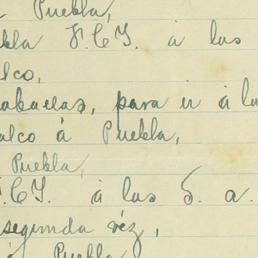 Puebla,
ebla F.C.I. á las
alco,
abuelas, para ir á la
alco á Puebla,
Puebla,
F.C.I. á las 5. a.
segunda véz,
á Puebla